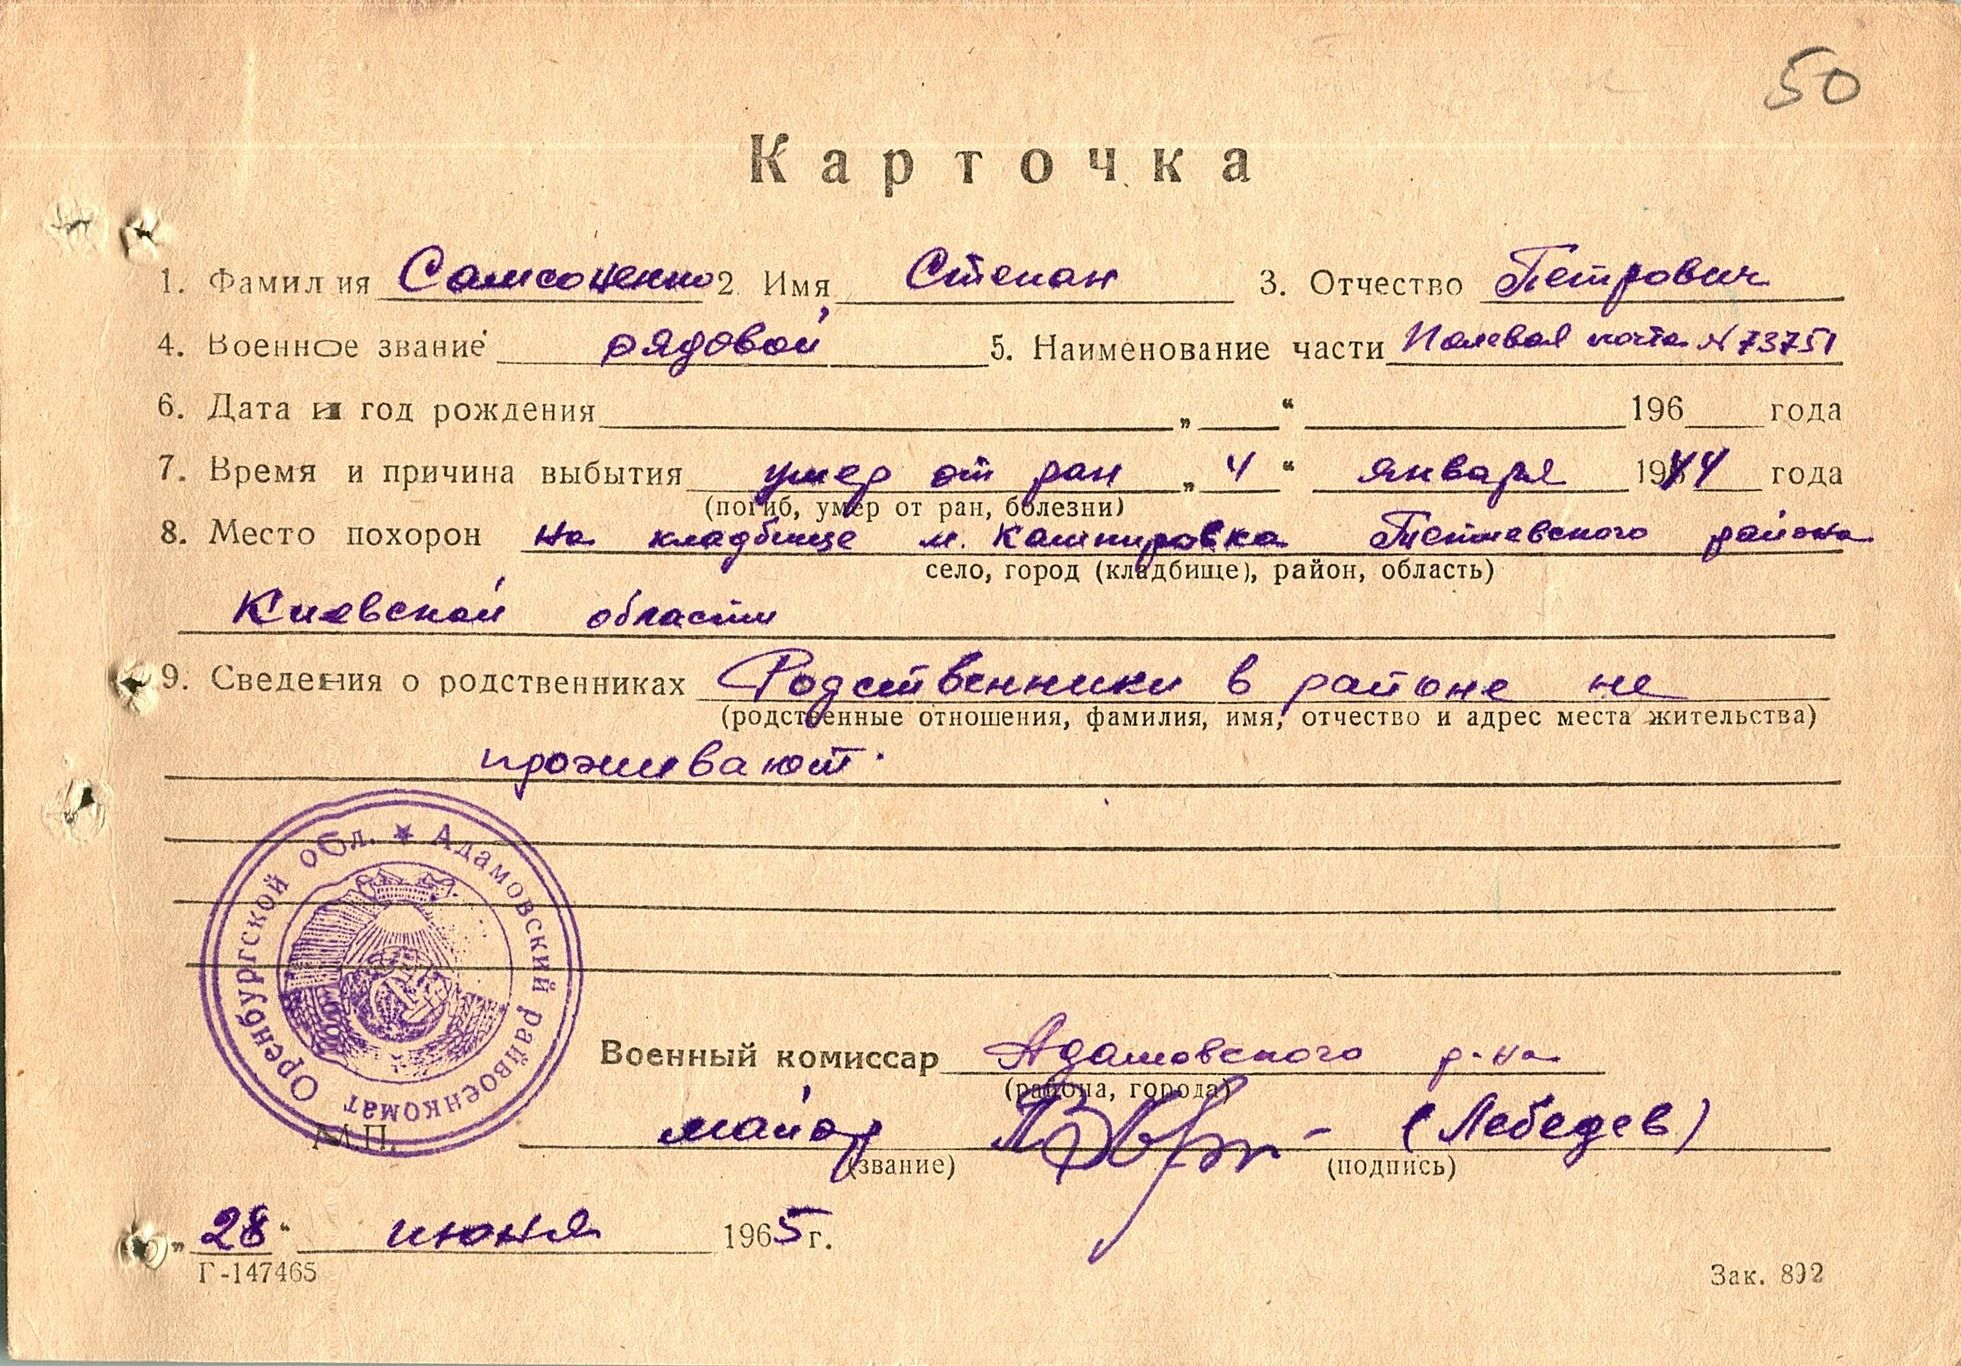 50
Карточка
1. Фамилия Самсоненко 2. Имя Степан 3. Отчество Петрович
4. Военное звание рядовой 5. Наименование части Полевая почта № 73751
6. Дата и год рождения „ “ 196 года
7. Время и причина выбытия умер от ран „ 4 “ января 1944 года
(погиб, умер от ран, болезни)
8. Место похорон на кладбище м. Кашперовка района
село, город (кладбище), район, область)
Киевской области
9. Сведения о родственниках Родственники в районе не
(родственные отношения, фамилия, имя, отчество и адрес места жительства)
проживают.
Адамовский райвоенкомат Оренбургской обл.
Военный комиссар Адамовского р-на
(района, города)
М.П.
майор (Лебедев)
(звание) (подпись)
„ 28 “ июня 1965 г.
Г-147465 Зак. 892